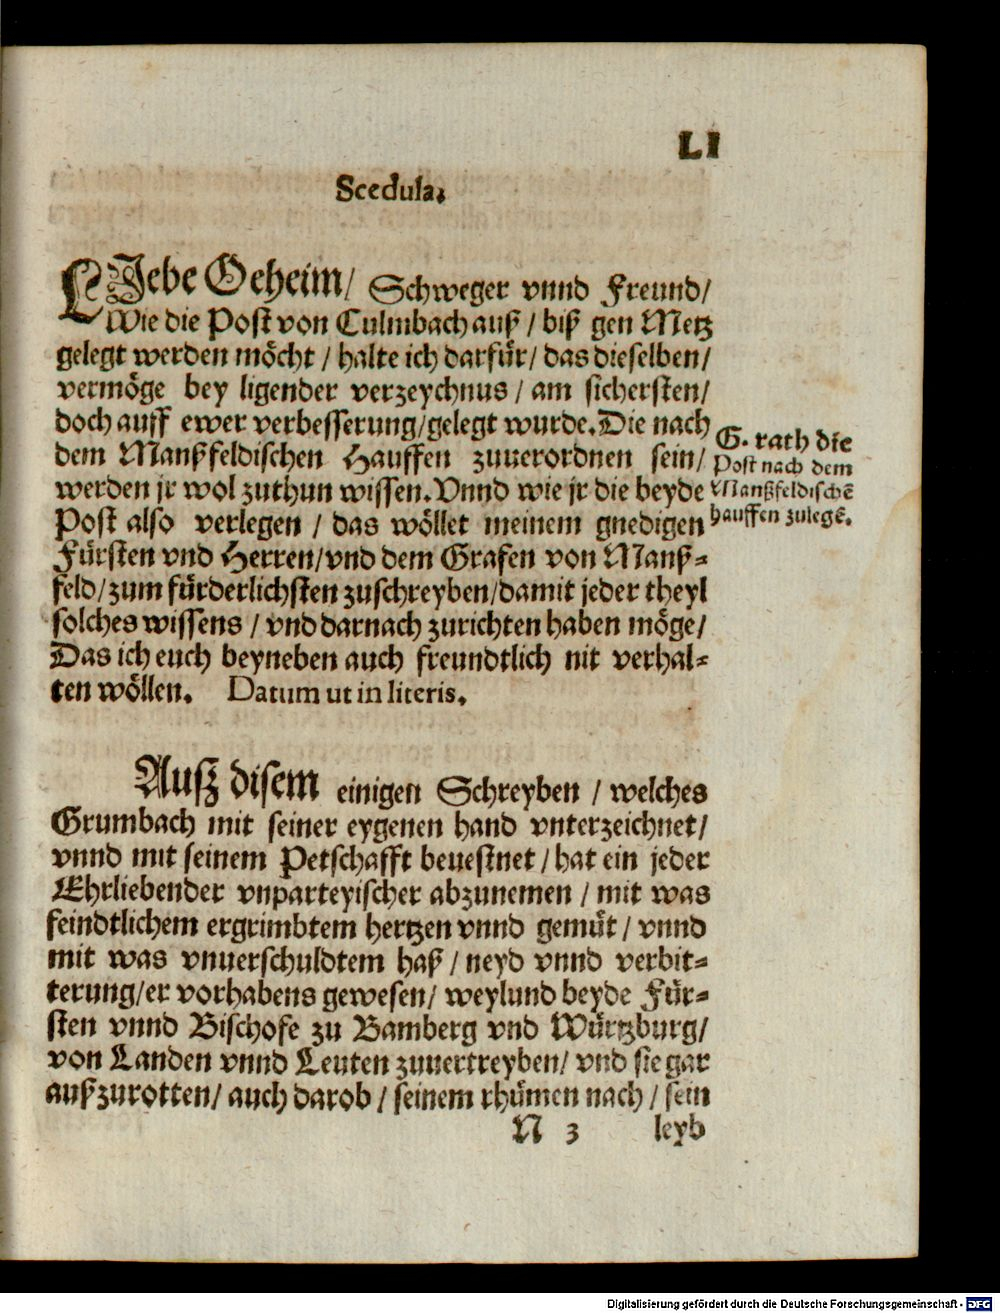 LI
Scedula.
LJebe Geheim / Schweger vnnd Freund /
Wie die Post von Culmbach auß / biß gen Metz
gelegt werden möcht / halte ich darfür / das dieselben /
vermöge bey ligender verzeychnus / am sichersten /
doch auff ewer verbesserung / gelegt wurde. Die nach
dem Manßfeldischen Hauffen zuuerordnen sein /
werden jr wol zuthun wissen. Vnnd wie jr die beyde
Post also verlegen / das wöllet meinem gnedigen
Fürsten vnd Herren / vnd dem Grafen von Manß-
feld / zum fürderlichsten zuschreyben / damit jeder theyl
solches wissens / vnd darnach zurichten haben möge /
Das ich euch beyneben auch freundtlich nit verhal-
ten wöllen. Datum ut in literis.
G. rath die
Post nach dem
Manßfeldischē
hauffen zulegē.
Auß disem einigen Schreyben / welches
Grumbach mit seiner eygenen hand vnterzeichnet /
vnnd mit seinem Petschafft beuestnet / hat ein jeder
Ehrliebender vnparteyischer abzunemen / mit was
feindtlichem ergrimbtem hertzen vnnd gemüt / vnnd
mit was vnuerschuldtem haß / neyd vnnd verbit-
terung / er vorhabens gewesen / weylund beyde Für-
sten vnnd Bischofe zu Bamberg vnd Würtzburg /
von Landen vnnd Leuten zuuertreyben / vnd sie gar
außzurotten / auch darob / seinem rhümen nach / sein
N 3 leyb
Digitalisierung gefördert durch die Deutsche Forschungsgemeinschaft - DFG